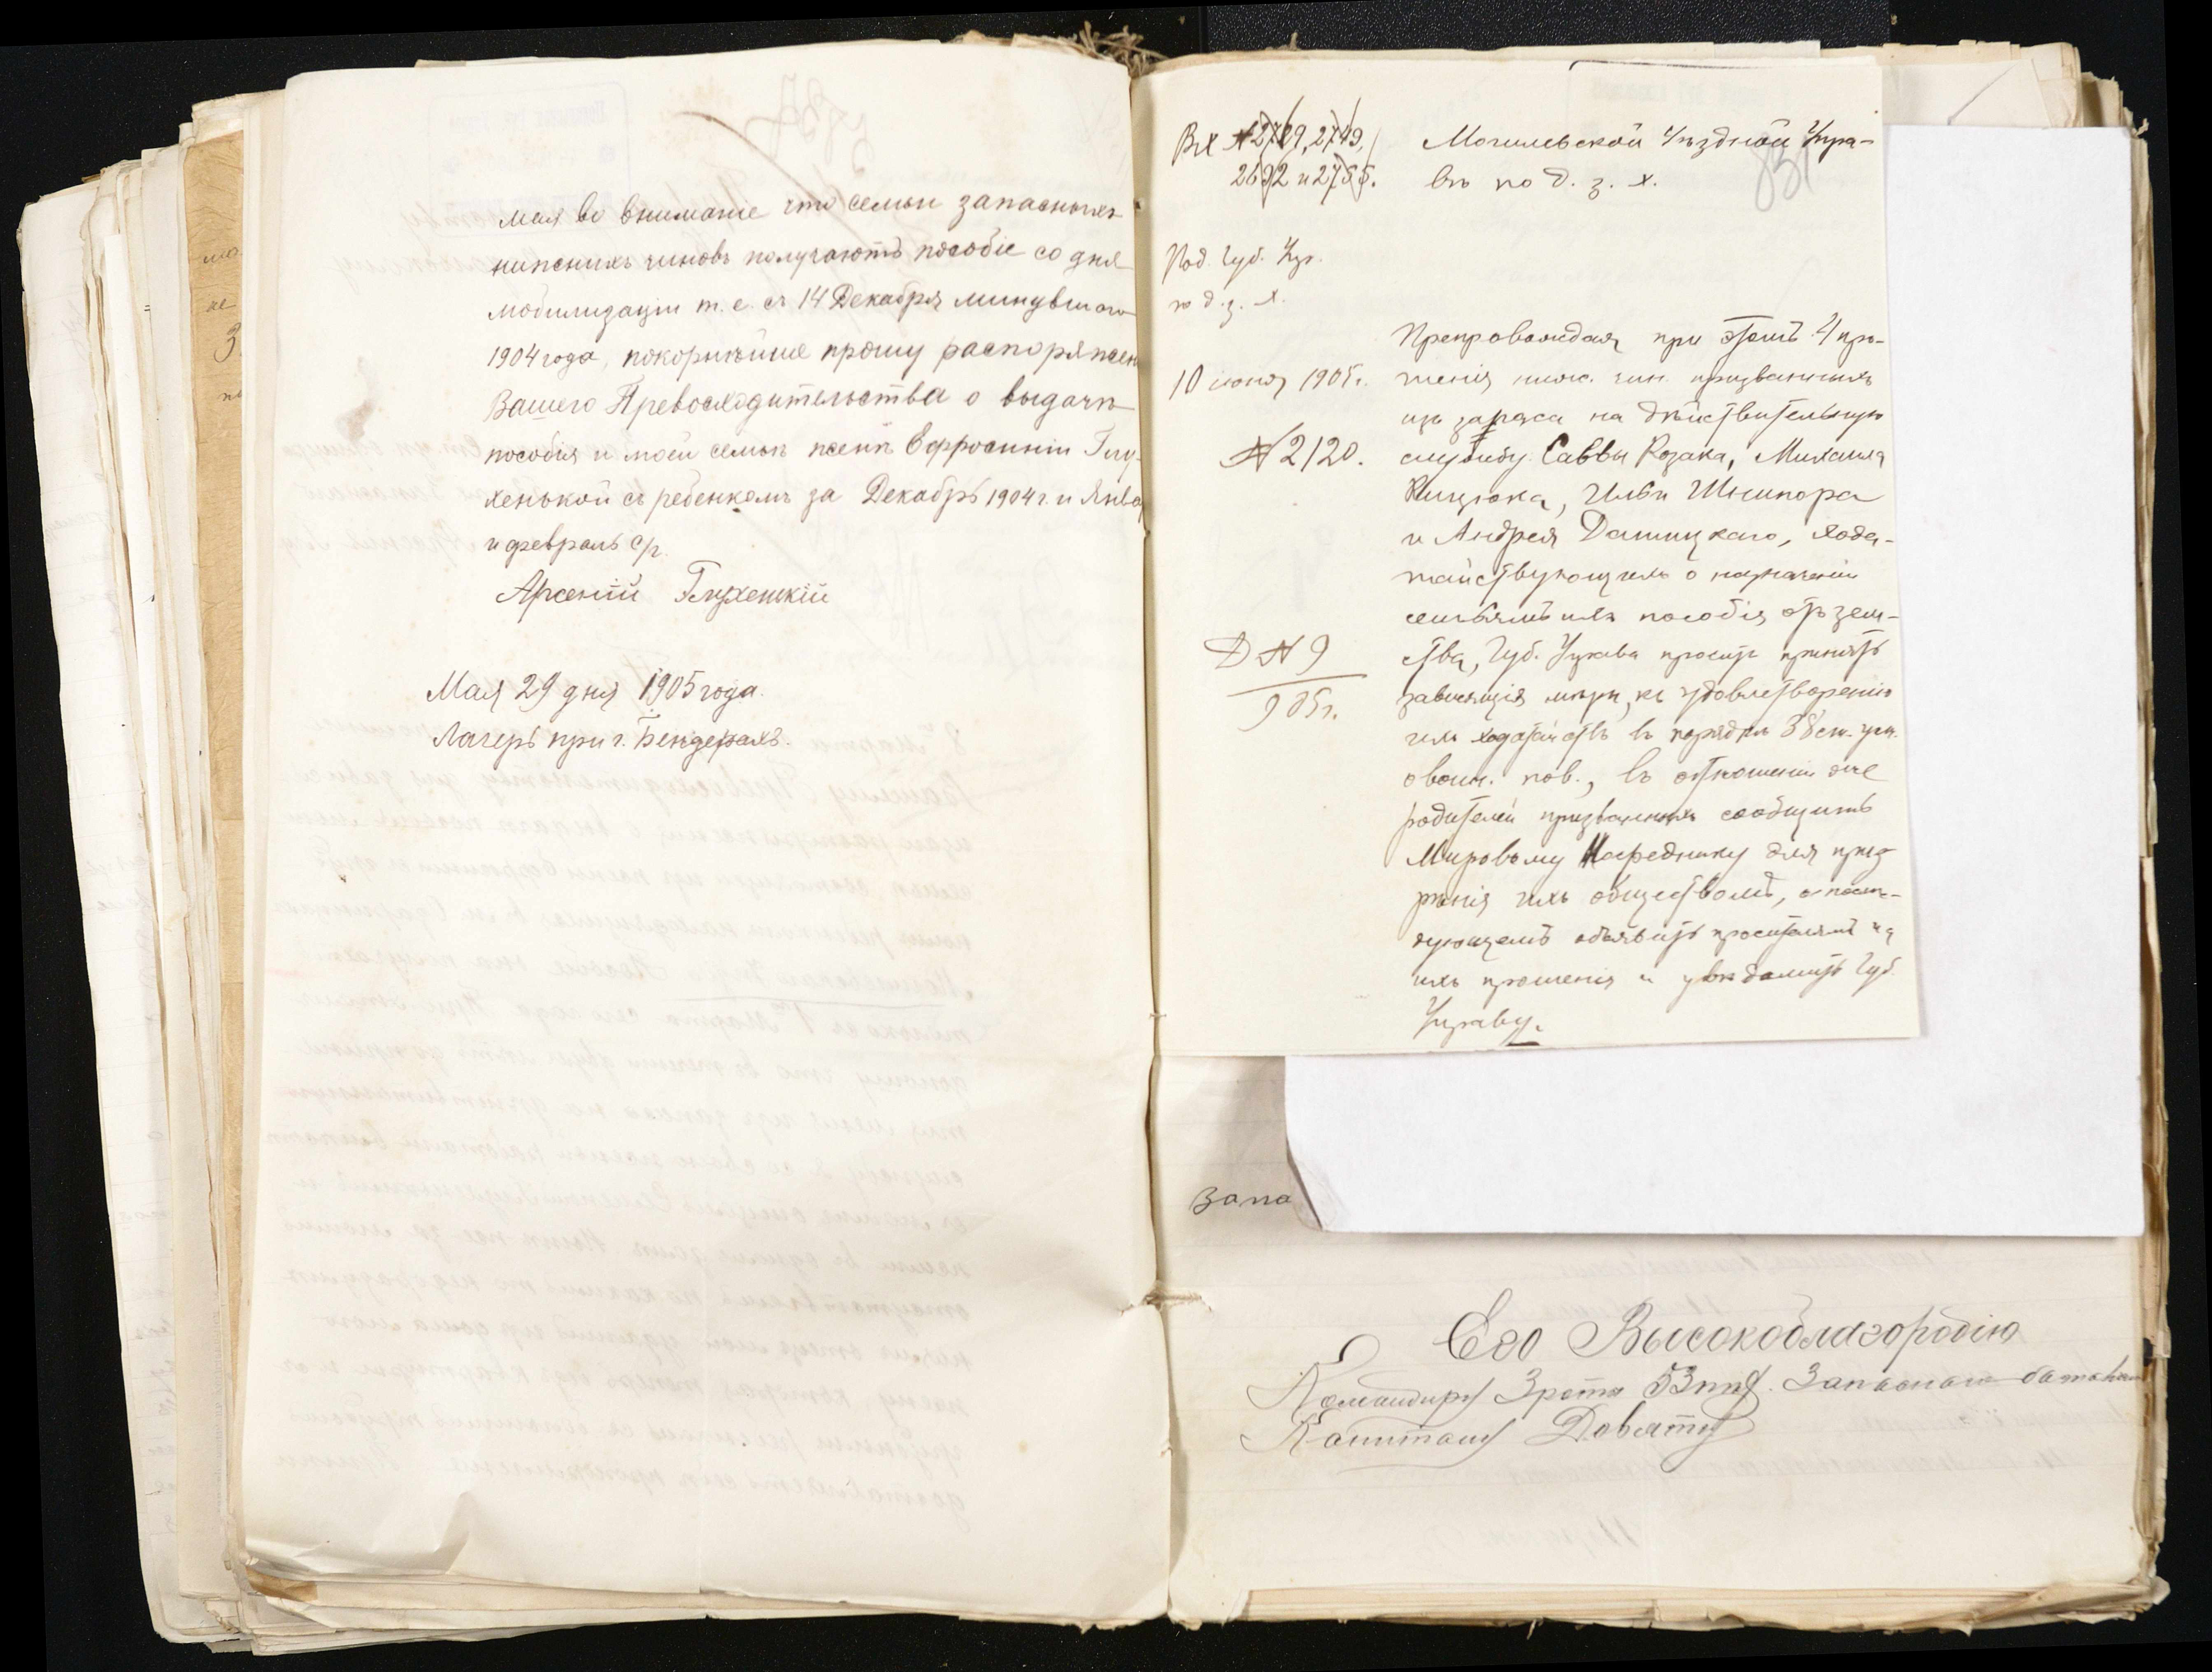 мая во вниманіе что семьи запасныхъ
нижнихъ чиновъ получаютъ пособіе со дня
мобилизаціи т. е. съ 14 Декабря минувшаго
1904 года, покорнѣйше прошу распоряжен
Вашего Превосходительства о выдачѣ
пособія и моей семьѣ женѣ Ефросиніи Глу-
хенькой съ ребенкомъ за Декабрь 1904 г. и Янва
и февраль с/г.
Арсеній Глухенькій
Мая 29 дня 1905 года.
Лагерь при г. Бендерахъ.
Вх №2729, 2749,
2692 и 2755.
Под. Губ. Упр.
по д. з. х.
10 іюня 1905 г.
№ 2120.
Д № 9
905 г.
Могилевской Уѣздной Упра-
вѣ по д. з. х.
831
Препровождая при этомъ 4 про-
шенія ниж. чин. призванныхъ
изъ запаса на дѣйствительную
службу Саввы Козака, Михаила
Кицюка, Ильи Шнипора
и Андрея Дашицкаго, хода-
тайствующихъ о назначеніи
семьямъ ихъ пособія отъ зем-
ства, Губ. Управа проситъ принять
зависящія мѣры, къ удовлетворенію
ихъ ходатайствъ въ порядкѣ 38 ст. уст.
о воин. пов., въ отношеніи же
родителей призванныхъ сообщить
Мировому Посреднику для приз-
рѣнія ихъ обществомъ, о послѣ-
дующемъ объявить просителямъ на
ихъ прошенія и увѣдомить Губ.
Управу.
Запа
Его Высокоблагородію
Командиру 3 роты 53 пѣх. Запаснаго баталіон
Капитану Довяту